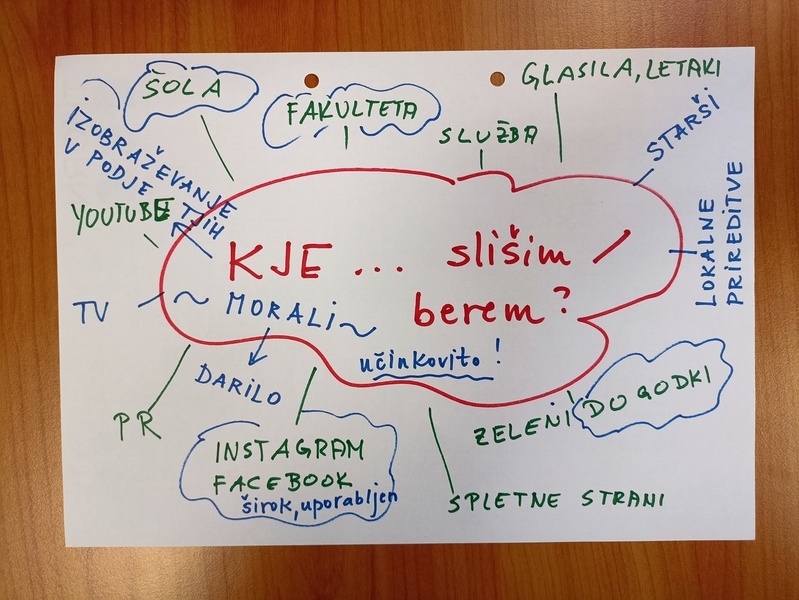 ŠOLA
FAKULTETA
SLUŽBA
GLASILA, LETAKI
STARŠI
LOKALNE
PRIREDITVE
IZOBRAŽEVANJE
V PODJETJIH
YOUTUBE
TV
KJE ... slišim /
berem?
~ MORALI ~
učinkovito!
DARILO
PR
INSTAGRAM
FACEBOOK
širok, uporabljen
ZELENI DOGODKI
SPLETNE STRANI